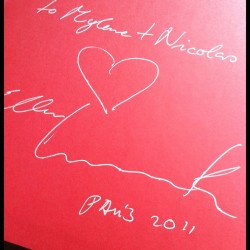 to Mylene + Nicolas
Ellen
PARIS 2011